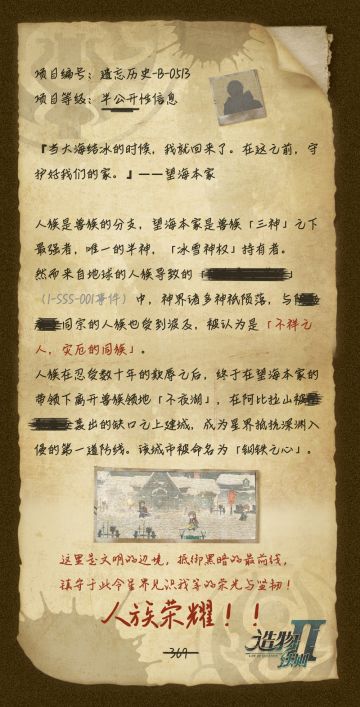 项目编号：遗忘历史-B-0513
项目等级：半公开性信息
『当大海结冰的时候，我就回来了。在这之前，守
护好我们的家。』——望海本家
人族是兽族的分支，望海本家是兽族「三神」之下
最强者，唯一的半神，「冰雪神权」持有者。
然而来自地球的人族导致的「
（1-SSS-001事件）中，神界诸多神祇陨落，与
同宗的人族也受到波及，被认为是「不祥之
人，灾厄的同族」。
人族在忍受数十年的欺辱之后，终于在望海本家的
带领下离开兽族领地「不夜湖」，在阿比拉山被
轰出的缺口之上建城，成为星界抵抗深渊入
侵的第一道防线。该城市被命名为「钢铁之心」。
这里是文明的边境，抵御黑暗的最前线，
镇守于此令星界见识我等的荣光与坚韧！
人族荣耀！！
造物法则II
369